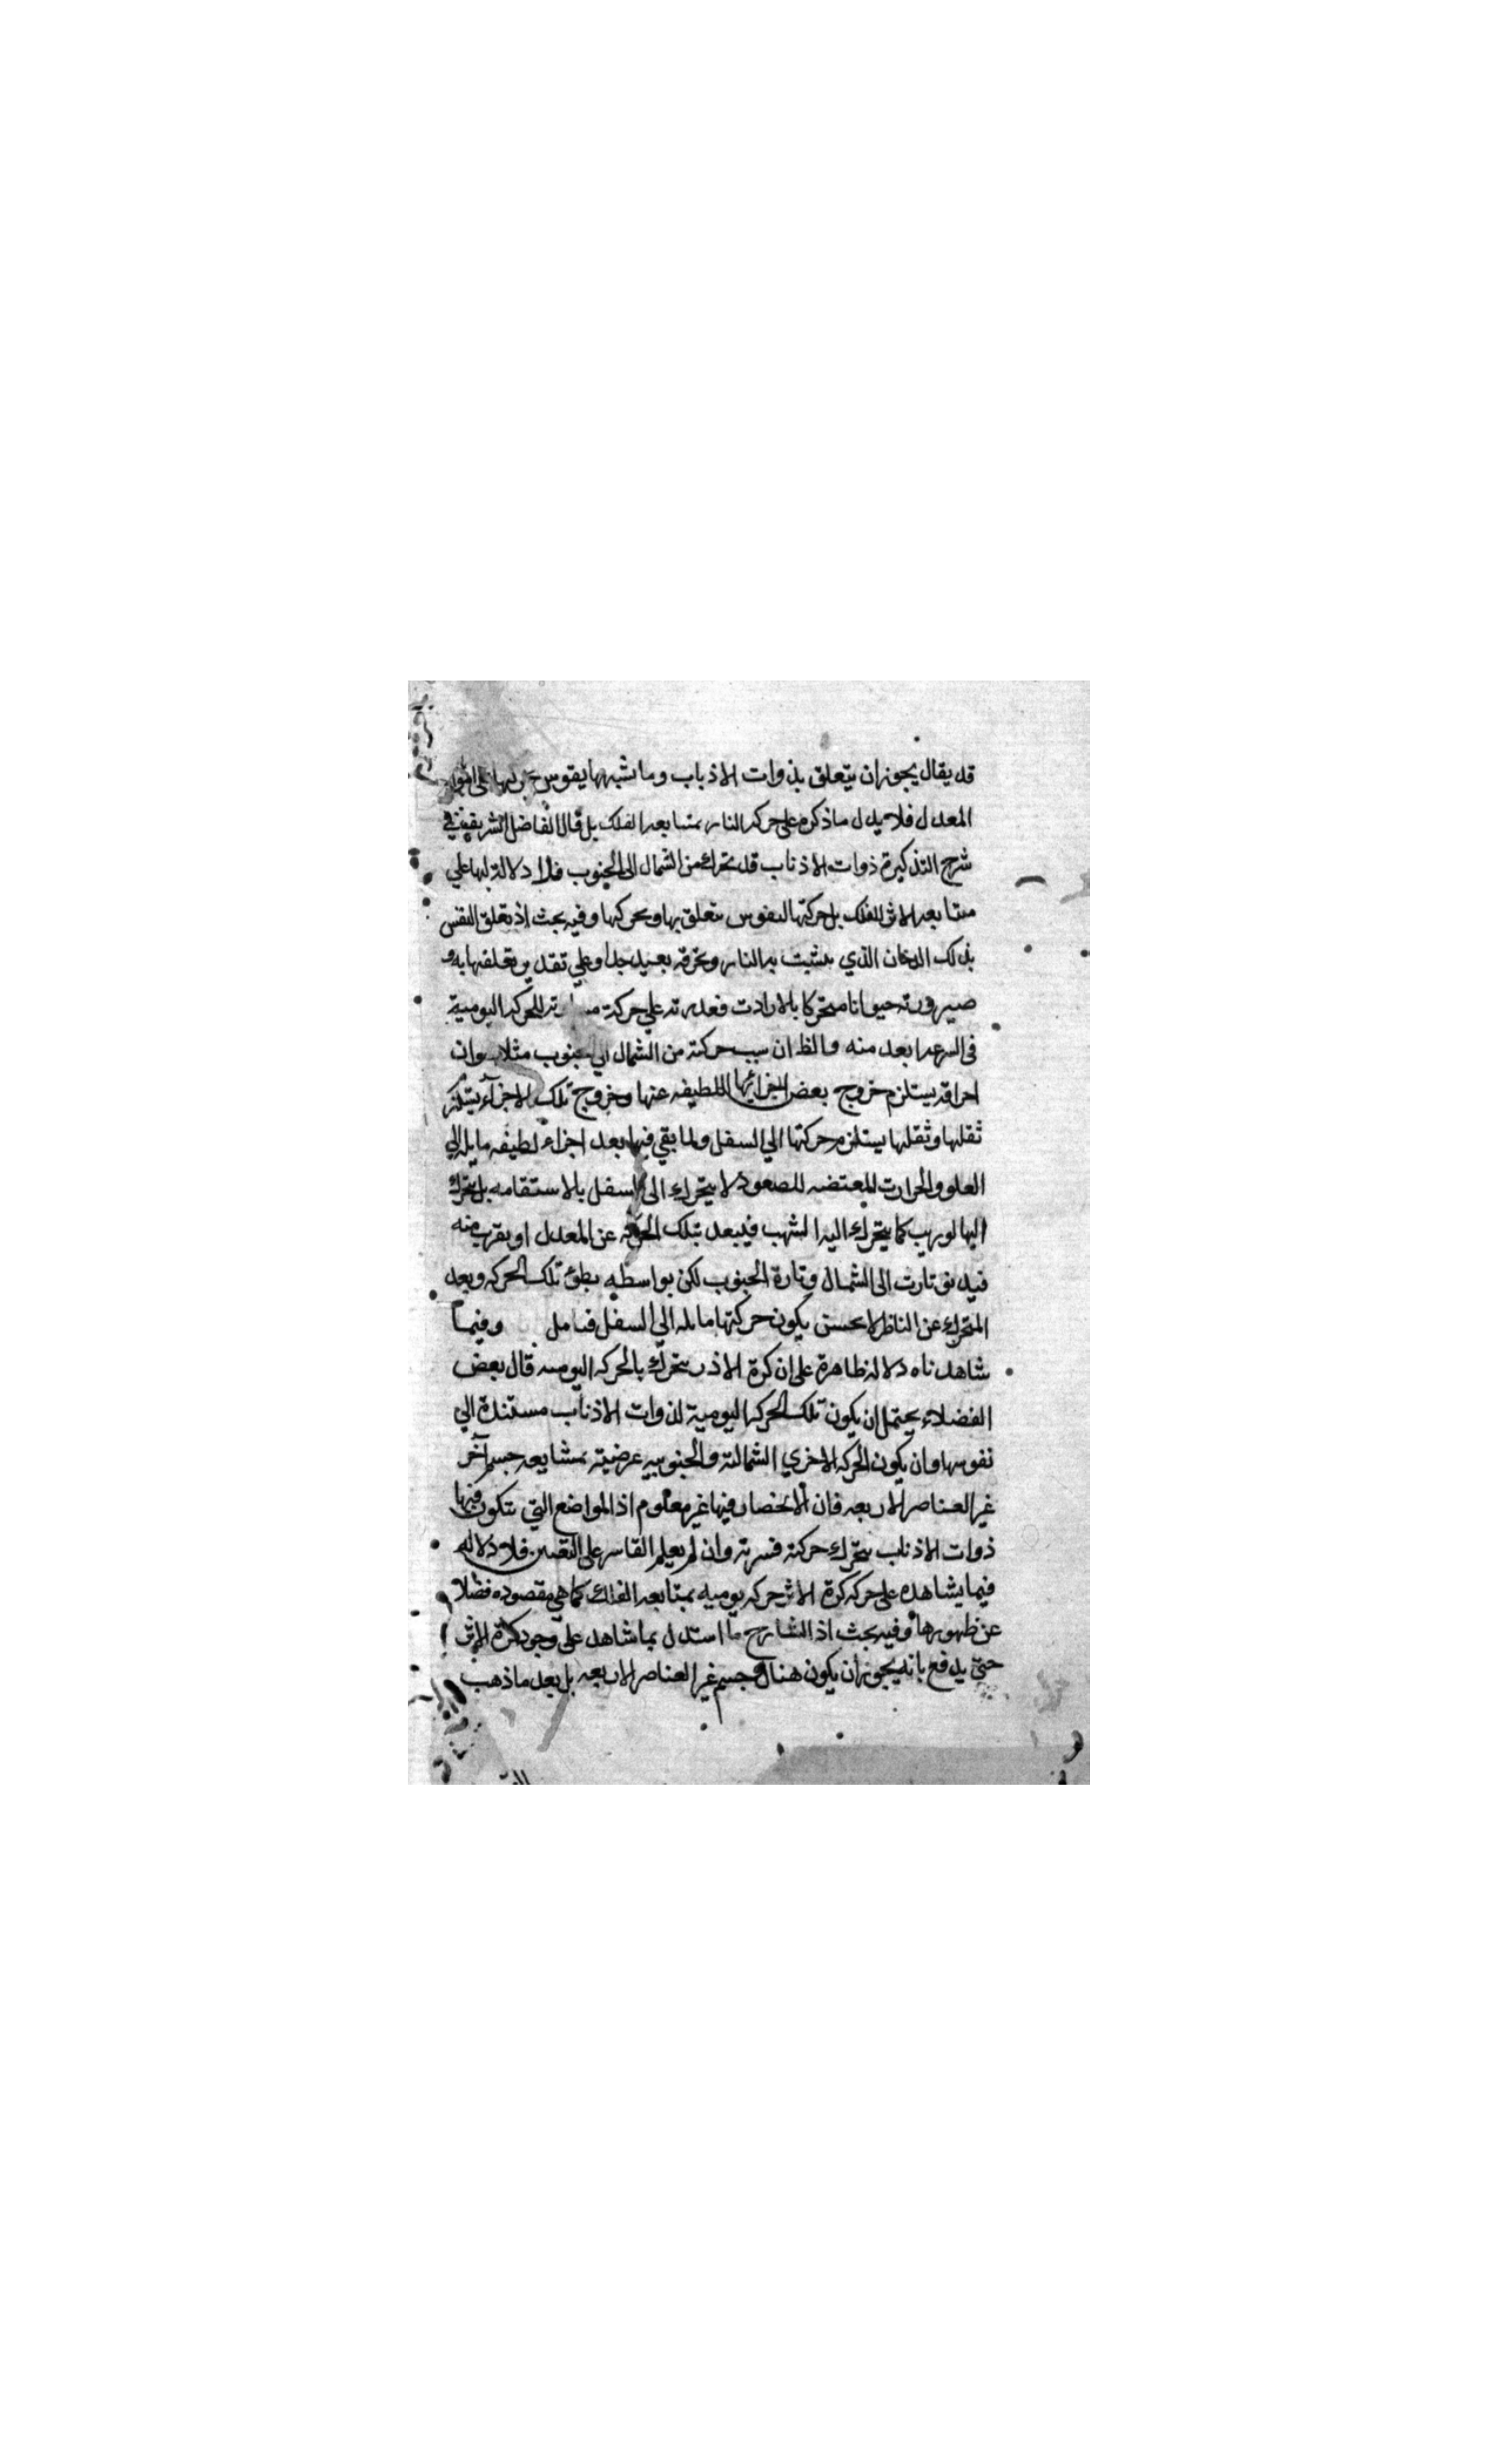 قد يقال يجوز ان يتعلق بذوات الاذباب وما شبهها يقوس
المعدل فلا يدل ما ذكره على حركه النار بمتابعه الفلك بل قال الفاضل الشريف في
شرح التذكيرة ذوات الاذناب قد تتحرك من الشمال الى الجنوب فلا دلالة لها علي
متابعه الاثير للفلك بل حركتها لنفوس متعلق بها ويحركها وفيه بحث اذ تعلق النفس
بذلك الدخان الذي يتشبث به النار وتحرقه بعيد جدا وعلي تقدير تعلقها به و
صيرورته حيوانا متحركا بالارادت فقدرته علي حركة للحركه اليومية
في السرعه ابعد منه والظ ان سبب حركته من الشمال الي الجنوب مثلا هو ان
احراقه يستلزم خروج بعض اجزائها اللطيفه عنها وخروج تلك الاجزآء يستلزم
ثقلها وثقلها يستلزم حركتها الي السفل ولما بقي فيها بعد اجزاء لطيفه مايله الي
العلو والحرارت المقتضيه للصعود لا يتحرك الى اسفل بالاستقامه بل يتحرك
اليها لوريب كما يتحرك اليه الشهب فيبعد بتلك الحركه عن المعدل او يقرب منه
فيدنو تارت الى الشمال وتارة الجنوب لكن بواسطه بطؤ تلك الحركه وبعد
المتحرك عن الناظر لا يحس يكون حركتها مايله الي السفل فتامل وفيما
شاهدناه دلاله ظاهرة على ان كرة الاثير يتحرك بالحركه اليوميه قال بعض
الفضلاء يحتمل ان يكون تلك الحركه اليومية لذوات الاذناب مستندة الي
نفوسها وان يكون الحركه الاخري الشماليه والجنوبيه عرضية بمشايعه جسم آخر
غير العناصر الاربعه فان الانحصار فيها غير معلوم اذ المواضع التي يتكون فيها
ذوات الاذناب يتحرك حركة قسرية وان لم يعلم القاسر على التعيين فلا دلاله
فيما يشاهده على حركه كرة الاثير حركه يوميه بمتابعه الفلك كما هي مقصوده فضلا
عن ظهورها وفيه بحث اذ الشارح ما استدل بما شاهد على وجود كرة الاثير
حتي يدفع بانه يجوز ان يكون هناك جسم غير العناصر الاربعه بل بعد ما ذهب